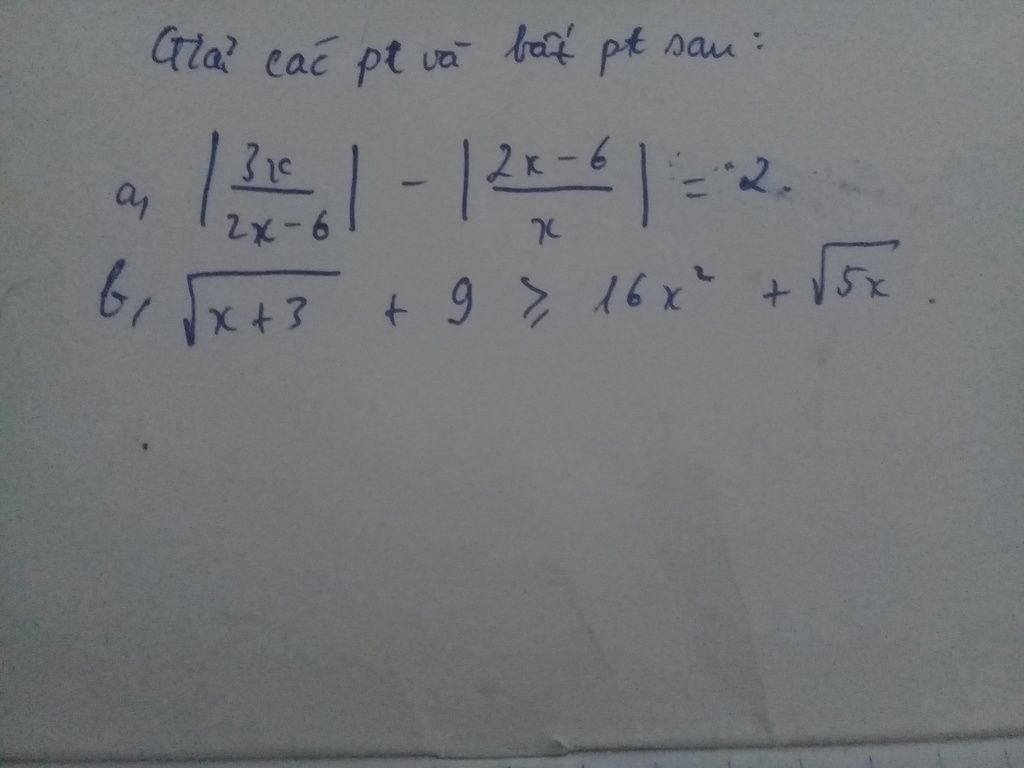 Giải các pt và bất pt sau:
a, |3x/(2x-6)| - |(2x-6)/x| = 2.
b, √(x+3) + 9 ≥ 16x² + √(5x).